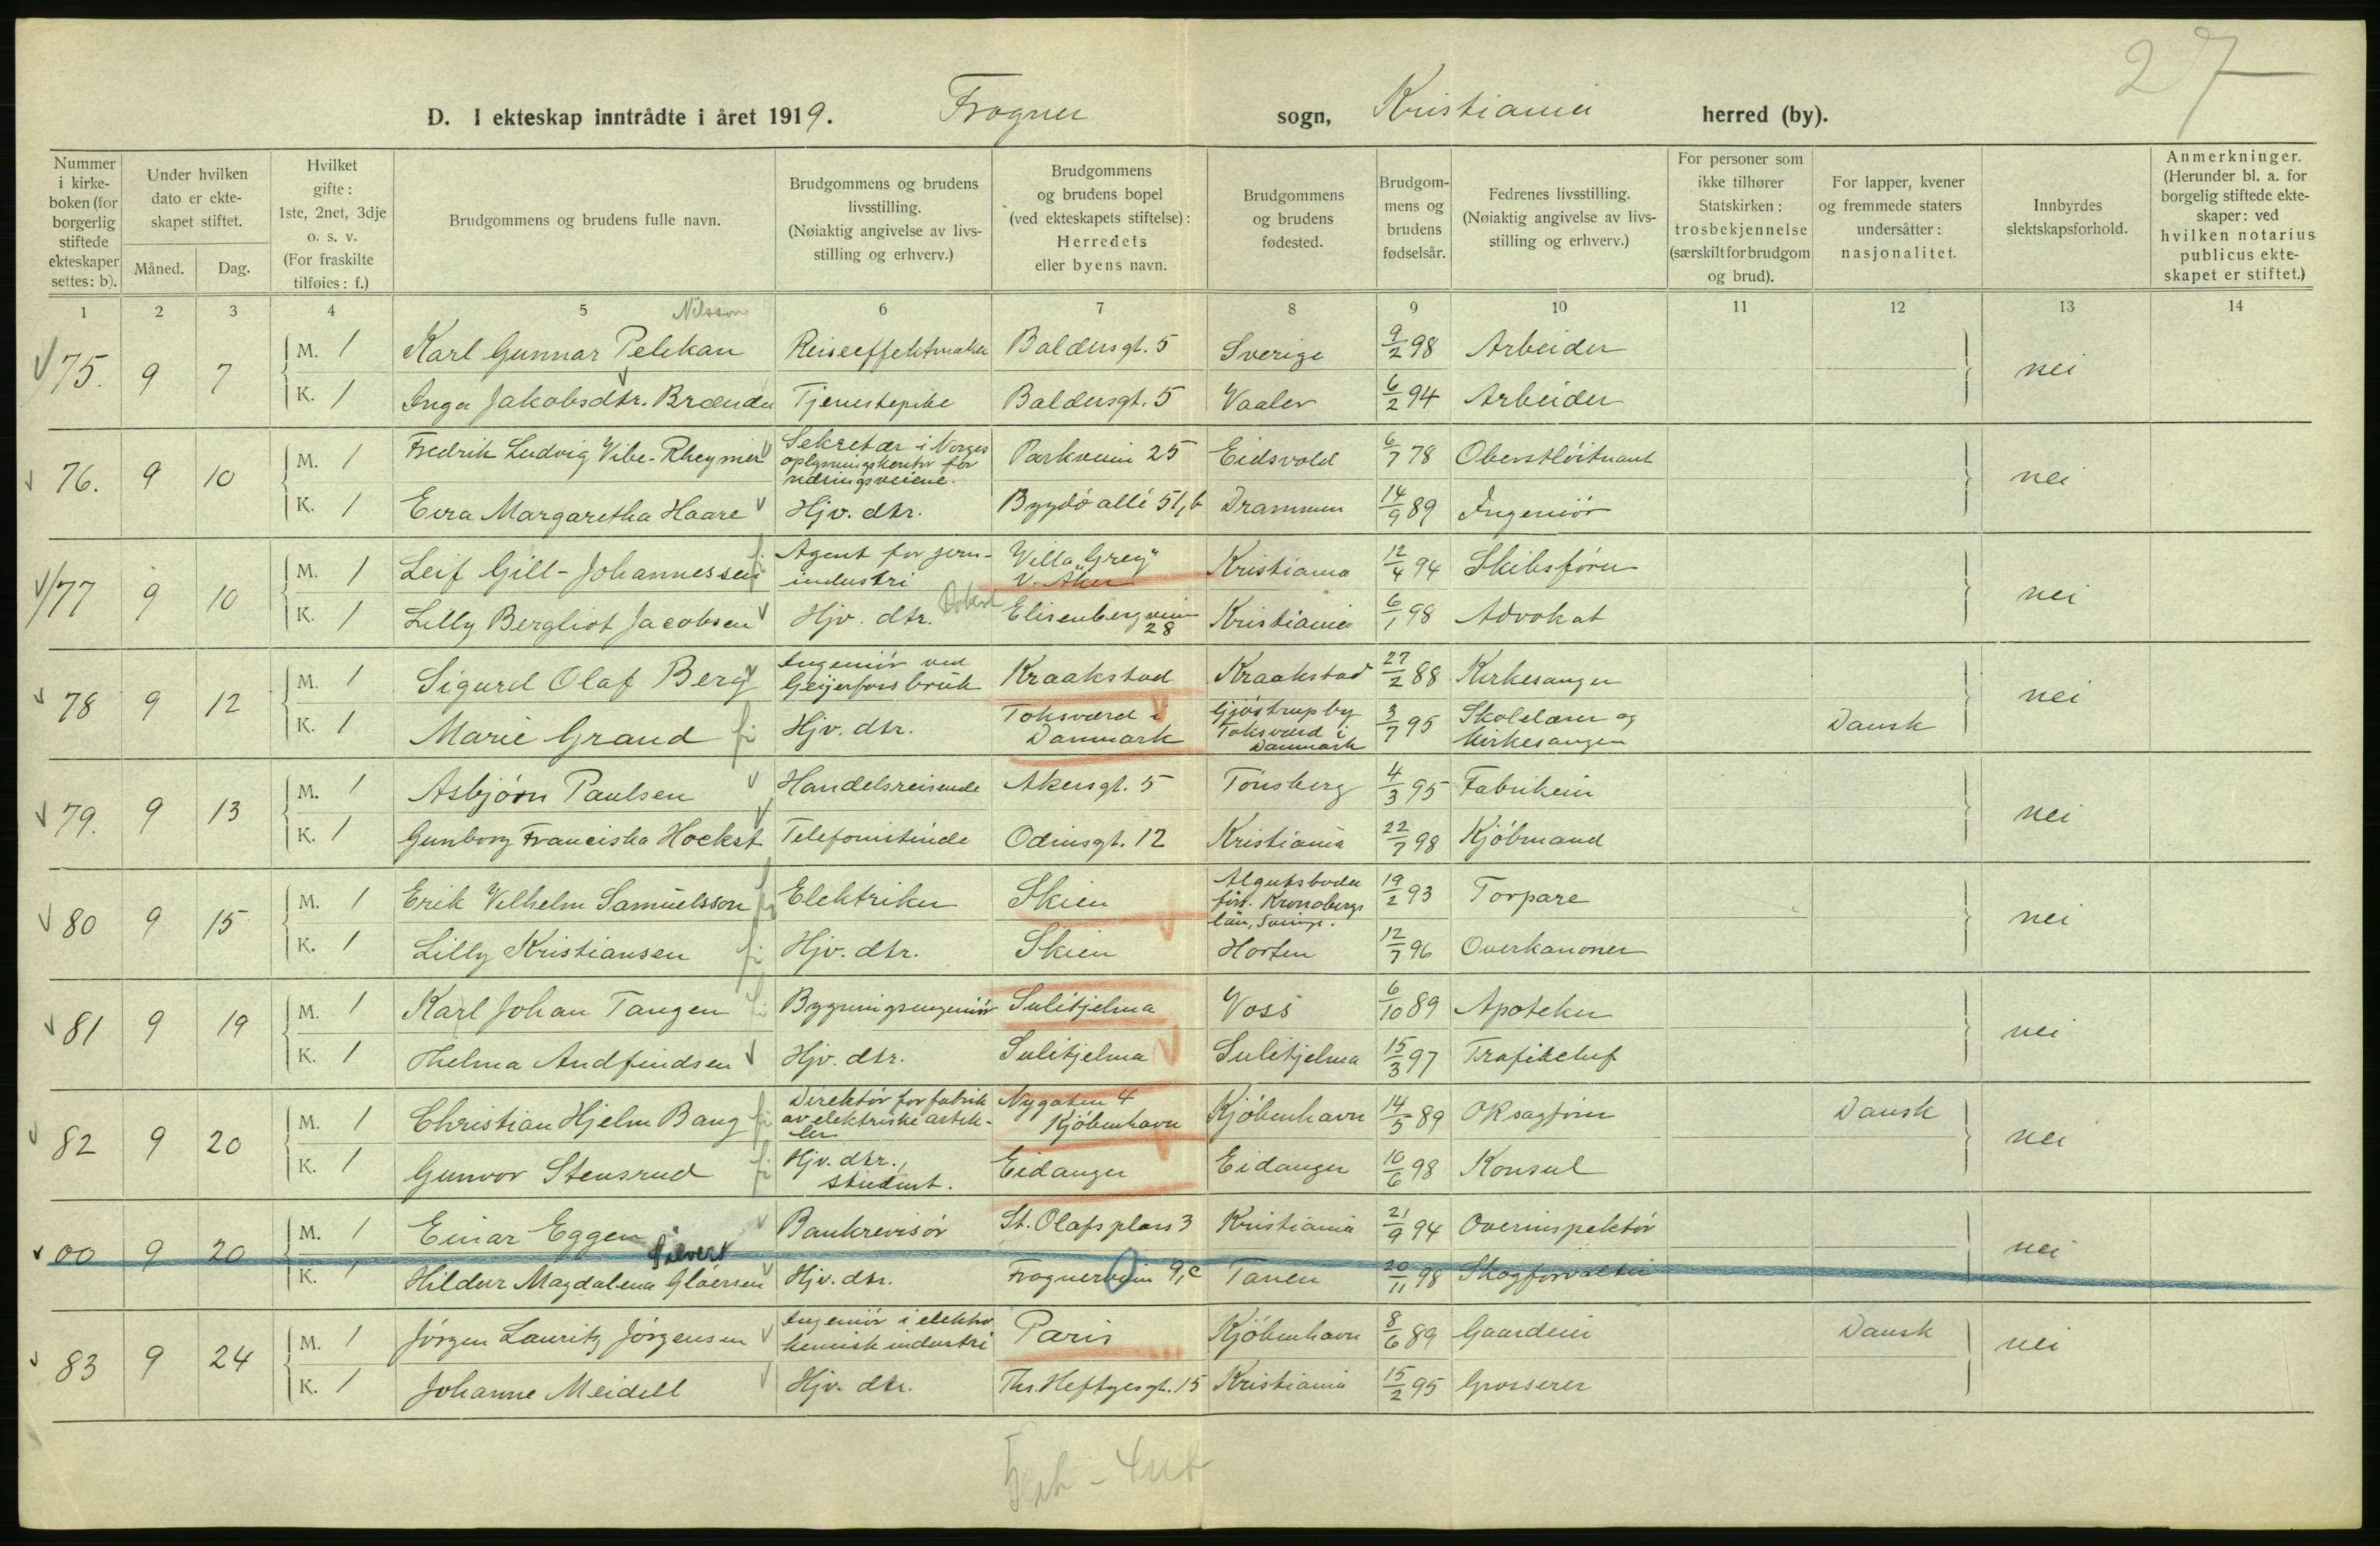 27
D. I ekteskap inntrådte i året 1919. Frogner sogn, Kristiania herred (by).
Nummer i kirkeboken (for borgerlig stiftede ekteskaper settes: b).
Under hvilken dato er ekteskapet stiftet.
Måned. Dag.
Hvilket gifte: 1ste, 2net, 3dje o. s. v. (For fraskilte tilføies: f.)
Brudgommens og brudens fulle navn.
Brudgommens og brudens livsstilling. (Nøiaktig angivelse av livsstilling og erhverv.)
Brudgommens og brudens bopel (ved ekteskapets stiftelse): Herredets eller byens navn.
Brudgommens og brudens fødested.
Brudgommens og brudens fødselsår.
Fedrenes livsstilling. (Nøiaktig angivelse av livsstilling og erhverv.)
For personer som ikke tilhører Statskirken: trosbekjennelse (særskilt for brudgom og brud).
For lapper, kvener og fremmede staters undersåtter: nasjonalitet.
Innbyrdes slektskapsforhold.
Anmerkninger. (Herunder bl. a. for borgelig stiftede ekteskaper: ved hvilken notarius publicus ekteskapet er stiftet.)
1 2 3 4 5 6 7 8 9 10 11 12 13 14
Nilsson
75. 9 7 M. 1 Karl Gunnar Pelikan Reiseeffektmaker Baldersgt. 5 Sverige 9/2 98 Arbeider nei
K. 1 Inga Jakobsdtr. Brænden Tjenestepike Baldersgt. 5 Vaaler 6/2 94 Arbeider
76. 9 10 M. 1 Fredrik Ludvig Vibe-Rheymer Sekretær i Norges oplysningskontor for næringsveiene. Parkveien 25 Eidsvold 6/7 78 Oberstløitnant nei
K. 1 Eva Margaretha Haare Hjv. dtr. Bygdø allé 51,b Drammen 14/9 89 Ingeniør
77 9 10 M. 1 Leif Gill-Johannessen Agent for jernindustri Villa "Greg" V. Aker Kristiania 12/4 94 Skibsfører nei
K. 1 Lilly Bergliot Jacobsen Hjv. dtr. Elisenbergveien 28 Kristiania 6/1 98 Advokat
78 9 12 M. 1 Sigurd Olaf Berg Ingeniør ved Geijerfoss bruk Kraakstad Kraakstad 27/2 88 Kirkesanger nei
K. 1 Marie Grand Hjv. dtr. Toksværd i Danmark Gjøstrup by Toksværd i Danmark 3/7 95 Skolelærer og kirkesanger Dansk
79. 9 13 M. 1 Asbjørn Paulsen Handelsreisende Akersgt. 5 Tønsberg 4/3 95 Fabrikeier nei
K. 1 Gunborg Franciska Hockst Telefonistinde Odinsgt. 12 Kristiania 22/7 98 Kjøbmand
80 9 15 M. 1 Erik Vilhelm Samuelsson Elektriker Skien Algutsboda förs. Kronobergs län, Sverige. 19/2 93 Torpare nei
K. 1 Lilly Kristiansen Hjv. dtr. Skien Horten 12/7 96 Overkanoner
81 9 19 M. 1 Karl Johan Tangen Bygningsingeniør Sulitjelma Voss 6/10 89 Apoteker nei
K. 1 Thelma Andfindsen Hjv. dtr. Sulitjelma Sulitjelma 15/3 97 Trafikchef
82 9 20 M. 1 Christian Hjelm Bang Direktør for fabrik av elektriske artikler Nygaten 4 Kjøbenhavn Kjøbenhavn 14/5 89 ORsagfører Dansk nei
K. 1 Gunvor Stensrud Hjv. dtr., student. Eidanger Eidanger 10/6 98 Konsul
00 9 20 M. 1 Einar Eggen Bankrevisor St. Olafs plass 3 Kristiania 21/9 94 Overinspektør nei
K. 1 Hildur Magdalena Gløersen Hjv. dtr. Frognerveien 9,c Tanen 20/11 98 Skogforvalter
83 9 24 M. 1 Jørgen Lauritz Jørgensen Ingeniør i elektrokemisk industri Paris Kjøbenhavn 8/6 89 Gaardeier Dansk nei
K. 1 Johanne Meidell Hjv. dtr. Ths. Heftyesgt. 15 Kristiania 15/2 95 Grosserer